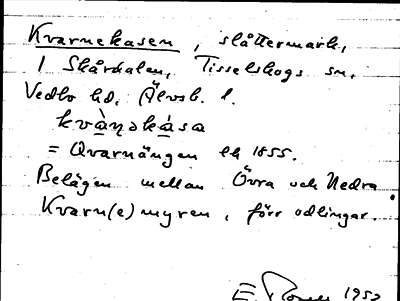 Kvarnekasen, slåttermark,
i Skårdalen, Tisselskogs sn,
Vedbo hd, Älvsb. l.
kvànəkása
= Qvarnängen lk 1855.
Belägen mellan Övra och Nedra
Kvarn(e)myren, förr odlingar.
E. 1952